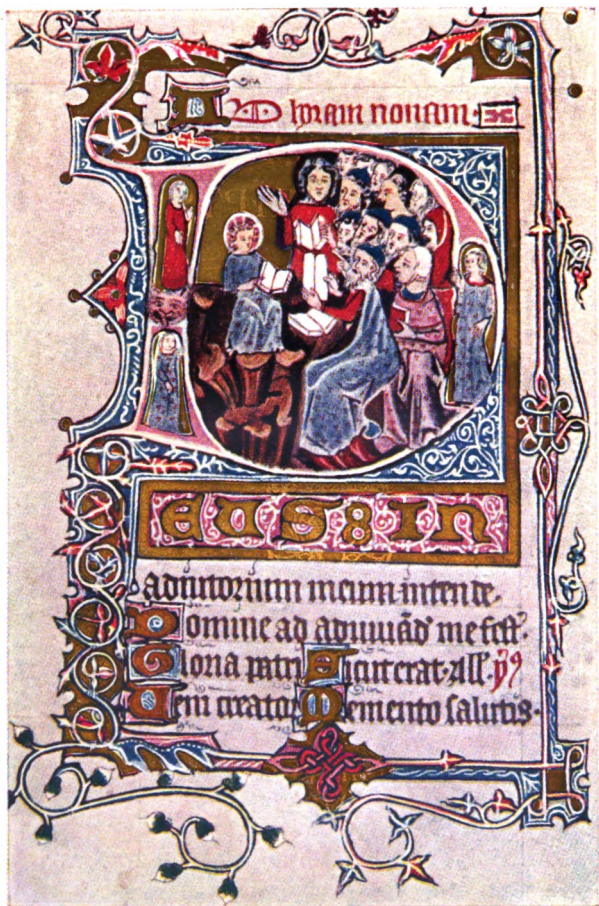 AD horam nonam.
D
EUS IN
adiutorium meum intende.
Domine ad adiuuād' me fest'.
Gloria patri Sicut erat. All'. yp̄9
Veni creator Memento salutis.